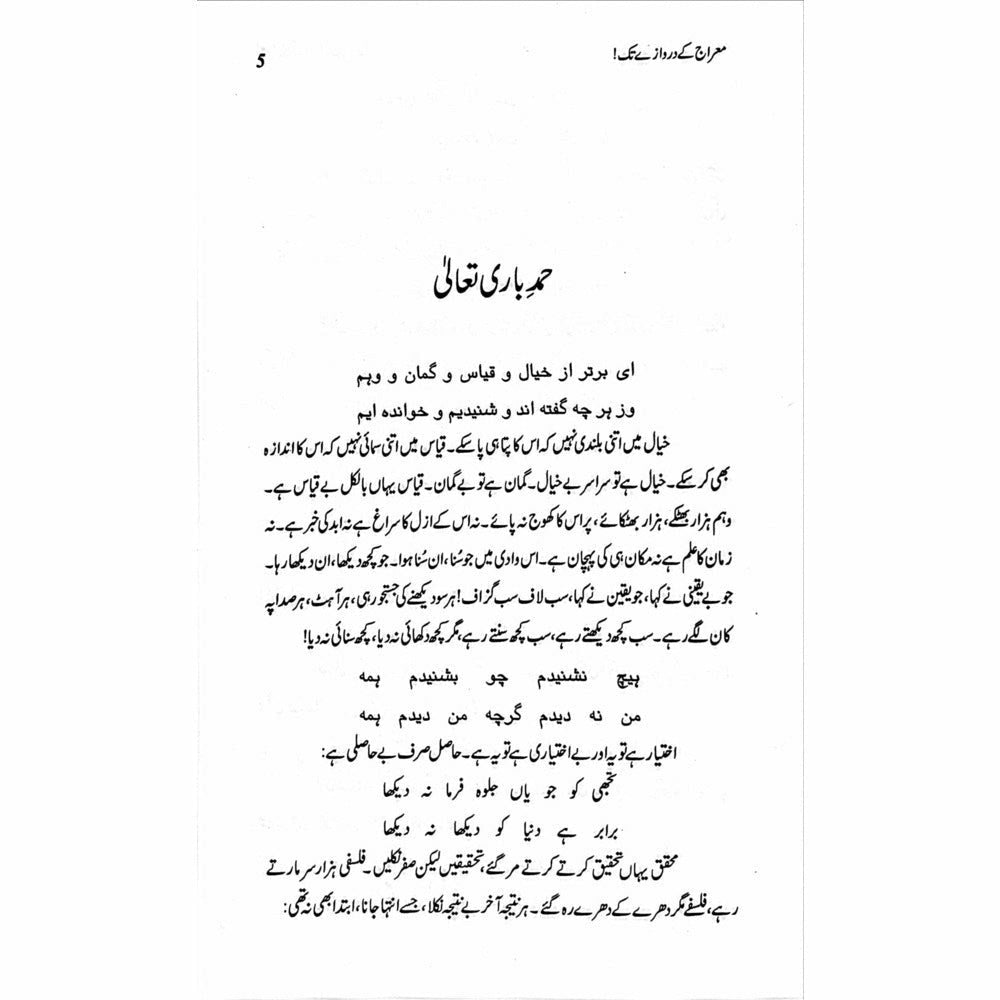 معراج کے دروازے تک!
5
حمدِ باری تعالیٰ
ای برتر از خیال و قیاس و گمان و وہم
وز ہر چہ گفتہ اند و شنیدیم و خواندہ ایم
خیال میں اتنی بلندی نہیں کہ اس کا پتا ہی پا سکے۔ قیاس میں اتنی سمائی نہیں کہ اس کا اندازہ
بھی کر سکے۔ خیال ہے تو سراسر بے خیال۔ گمان ہے تو بے گمان۔ قیاس یہاں بالکل بے قیاس ہے۔
وہم ہزار بھٹکے، ہزار بھٹکائے، پر اس کا کھوج نہ پائے۔ نہ اس کے ازل کا سراغ ہے نہ ابد کی خبر ہے۔ نہ
زمان کا علم ہے نہ مکان ہی کی پہچان ہے۔ اس وادی میں جو سُنا، ان سُنا ہوا۔ جو کچھ دیکھا، ان دیکھا رہا۔
جو بے یقینی نے کہا، جو یقین نے کہا، سب لاف سب گزاف! ہر سو دیکھنے کی جستجو رہی، ہر آہٹ، ہر صدا پہ
کان لگے رہے۔ سب کچھ دیکھتے رہے، سب کچھ سنتے رہے، مگر کچھ دکھائی نہ دیا، کچھ سنائی نہ دیا!
ہیچ نشنیدم چو بشنیدم ہمہ
من نہ دیدم گرچہ من دیدم ہمہ
اختیار ہے تو یہ اور بے اختیاری ہے تو یہ ہے۔ حاصل صرف بے حاصلی ہے:
تجھی کو جو یاں جلوہ فرما نہ دیکھا
برابر ہے دنیا کو دیکھا نہ دیکھا
محقق یہاں تحقیق کرتے کرتے مر گئے، تحقیقیں لیکن صفر نکلیں۔ فلسفی ہزار سر مارتے
رہے، فلسفے مگر دھرے کے دھرے رہ گئے۔ ہر نتیجہ آخر بے نتیجہ نکلا، جسے انتہا جانا، ابتدا بھی نہ تھی: